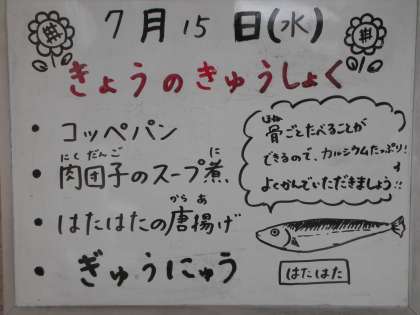 7月15日(水)
きょうのきゅうしょく
• コッペパン
にくだんご に
• 肉団子のスープ煮
から あ
• はたはたの唐揚げ
• ぎゅうにゅう
ほね
骨ごとたべることが
できるので、カルシウムたっぷり!
よくかんでいただきましょう!!
はたはた